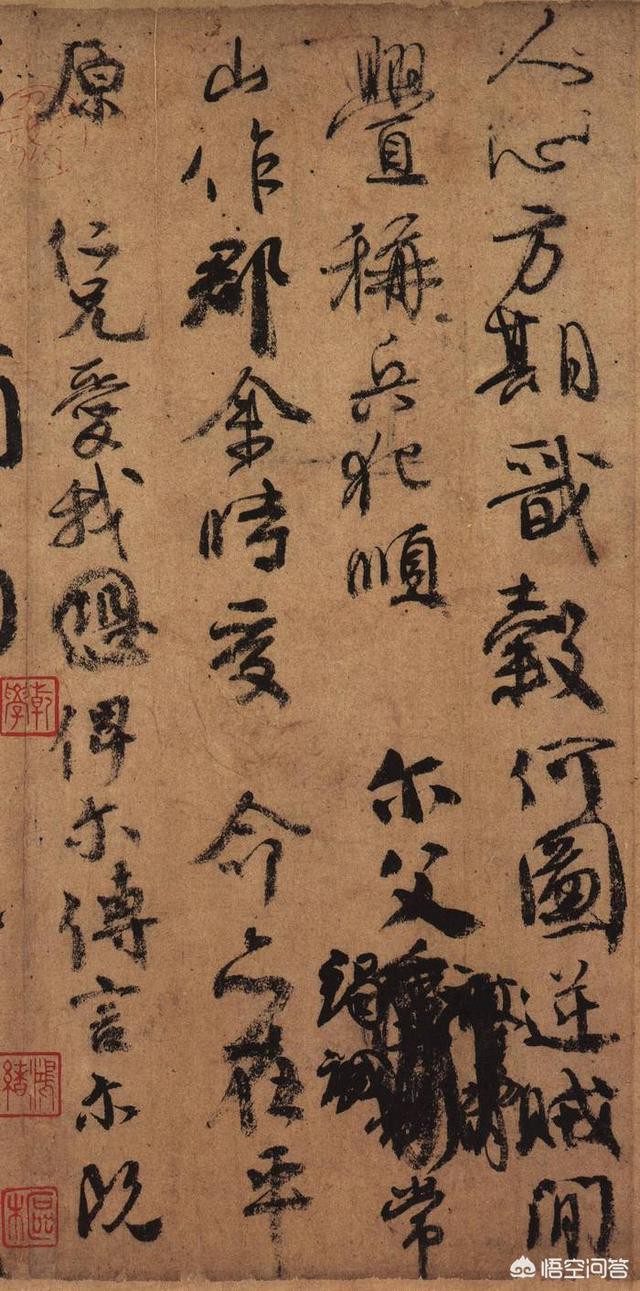 人心方期戩穀何圖逆賊間
舋稱兵犯順 尓父竭誠常
山作郡余時受 命亦在平
原 仁兄愛我俾尓傳言尓既
乾學
鴻緒
悟空问答